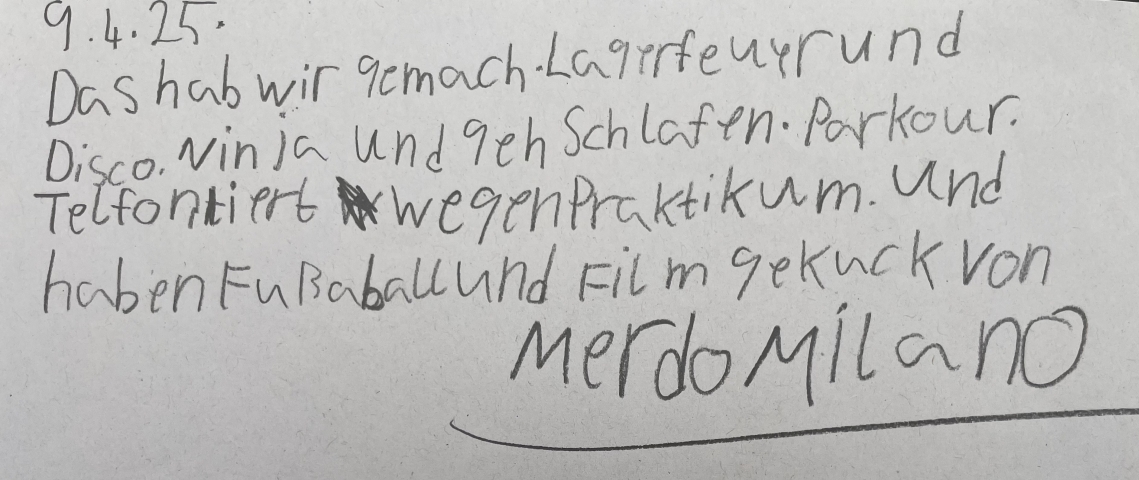 9.4.25.
Das hab wir gemach. Lagerfeuyr und
Disco. Ninja und geh Schlafen. Parkour.
Telfontiert wegen Praktikum. Und
haben Fußaball und Film gekuck von
Merdo Milano